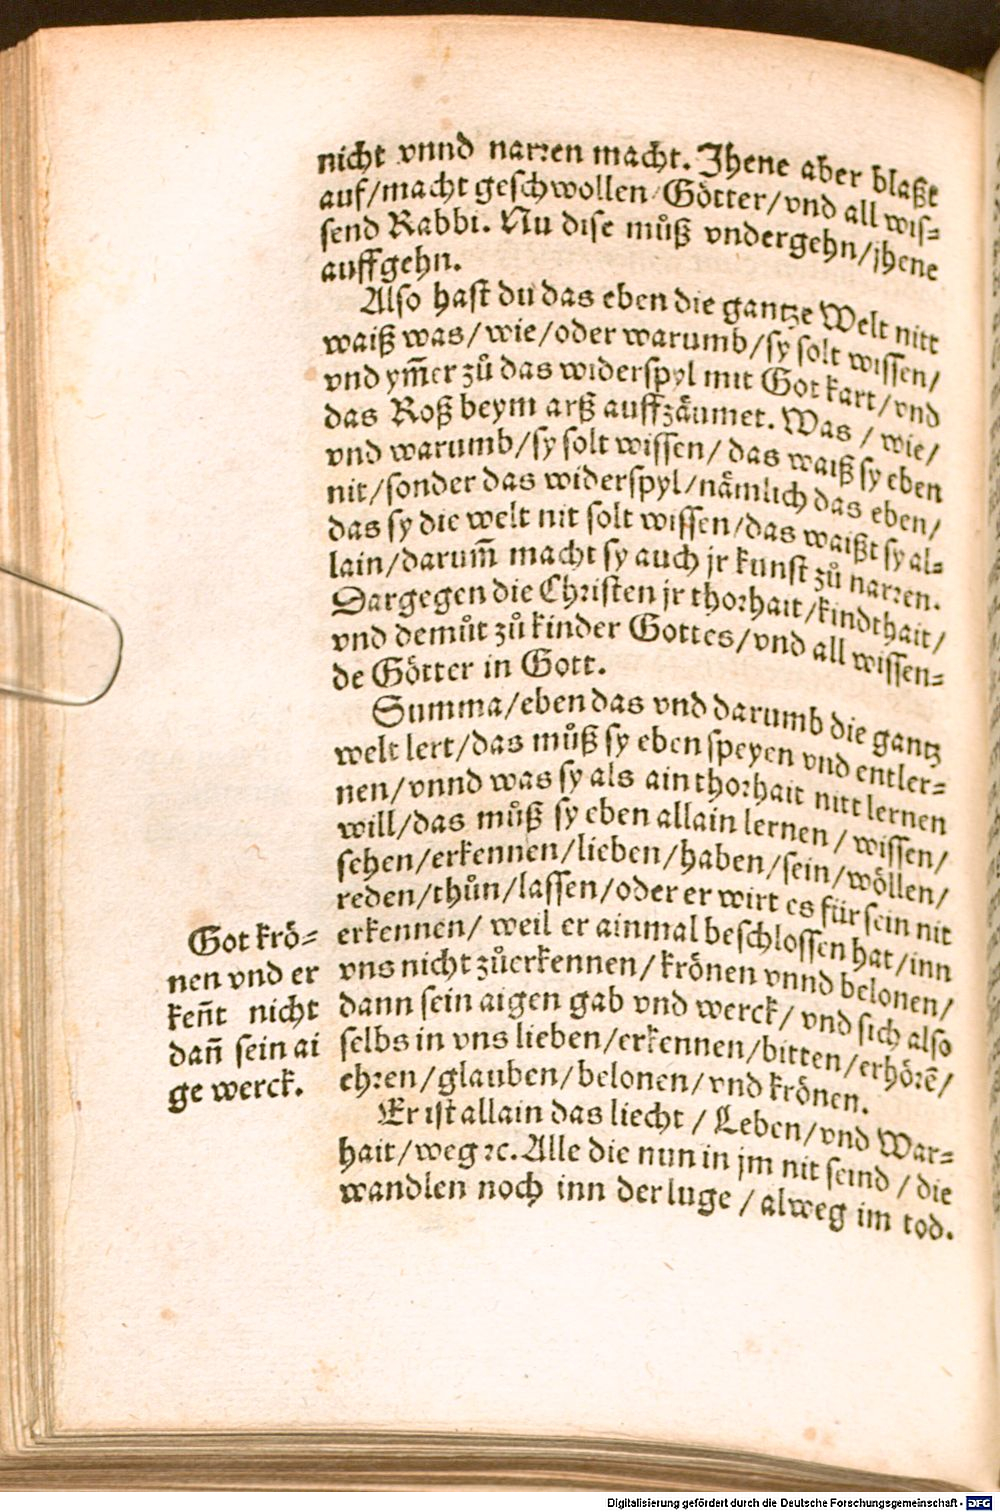 nicht vnnd narren macht. Jhene aber blaßt
auf/macht geschwollen/Götter/vnd all wis⸗
send Rabbi. Nu dise můß vndergehn/jhene
auffgehn.
Also hast du das eben die gantze Welt nitt
waiß was/wie/oder warumb/sy solt wissen/
vnd ym̃er zů das widerspyl mit Got kart/vnd
das Roß beym arß auffzäumet. Was/wie/
vnd warumb/sy solt wissen/das waiß sy eben
nit/sonder das widerspyl/nämlich das eben/
das sy die welt nit solt wissen/das waißt sy al⸗
lain/darum̃ macht sy auch jr kunst zů narren.
Dargegen die Christen jr thorhait/kindthait/
vnd demůt zů kinder Gottes/vnd all wissen⸗
de Götter in Gott.
Summa/eben das vnd darumb die gantz
welt lert/das můß sy eben speyen vnd entler⸗
nen/vnnd was sy als ain thorhait nitt lernen
will/das můß sy eben allain lernen/wissen/
sehen/erkennen/lieben/haben/sein/wöllen/
reden/thůn/lassen/oder er wirt es für sein nit
erkennen/weil er ainmal beschlossen hat/inn
vns nicht zůerkennen/krönen vnnd belonen/
dann sein aigen gab vnd werck/vnd sich also
selbs in vns lieben/erkennen/bitten/erhörẽ/
ehren/glauben/belonen/vnd krönen.
Er ist allain das liecht/Leben/vnd War⸗
hait/weg ⁊c. Alle die nun in jm nit seind/die
wandlen noch inn der luge/alweg im tod.
Got krö⸗
nen vnd er
keñt nicht
dañ sein ai
ge werck.
Digitalisierung gefördert durch die Deutsche Forschungsgemeinschaft - DFG